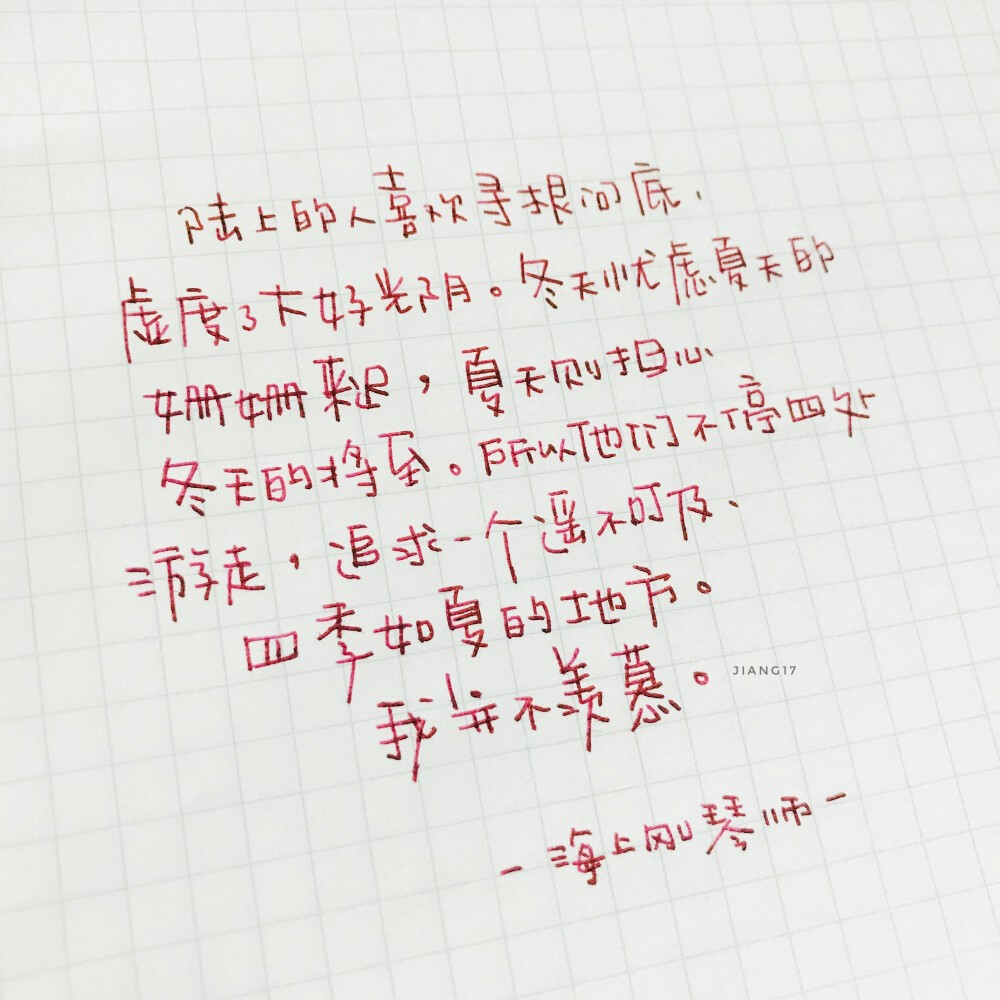 陆上的人喜欢寻根问底、
虚度了大好光阴。冬天忧虑夏天的
姗姗来迟，夏天则担心
冬天的将至。所以他们不停四处
游走，追求一个遥不可及、
四季如夏的地方。
我并不羡慕。
JIANG17
-海上钢琴师-